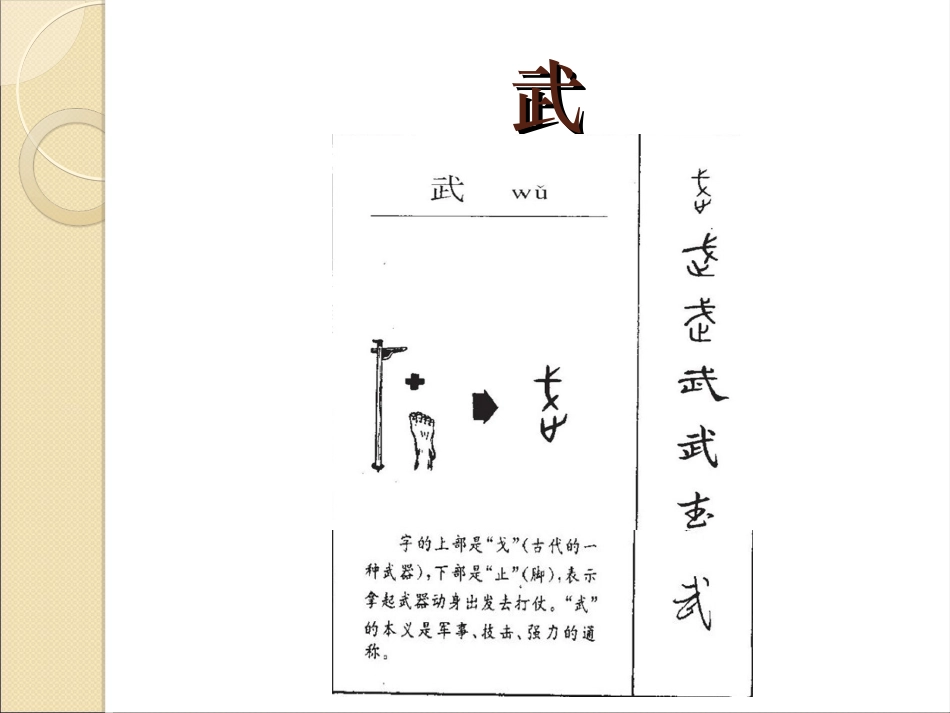 武
武 wǔ
字的上部是“戈”(古代的一
种武器),下部是“止”(脚),表示
拿起武器动身出发去打仗。“武”
的本义是军事、技击、强力的通
称。
武
武
武
武
武
武
武